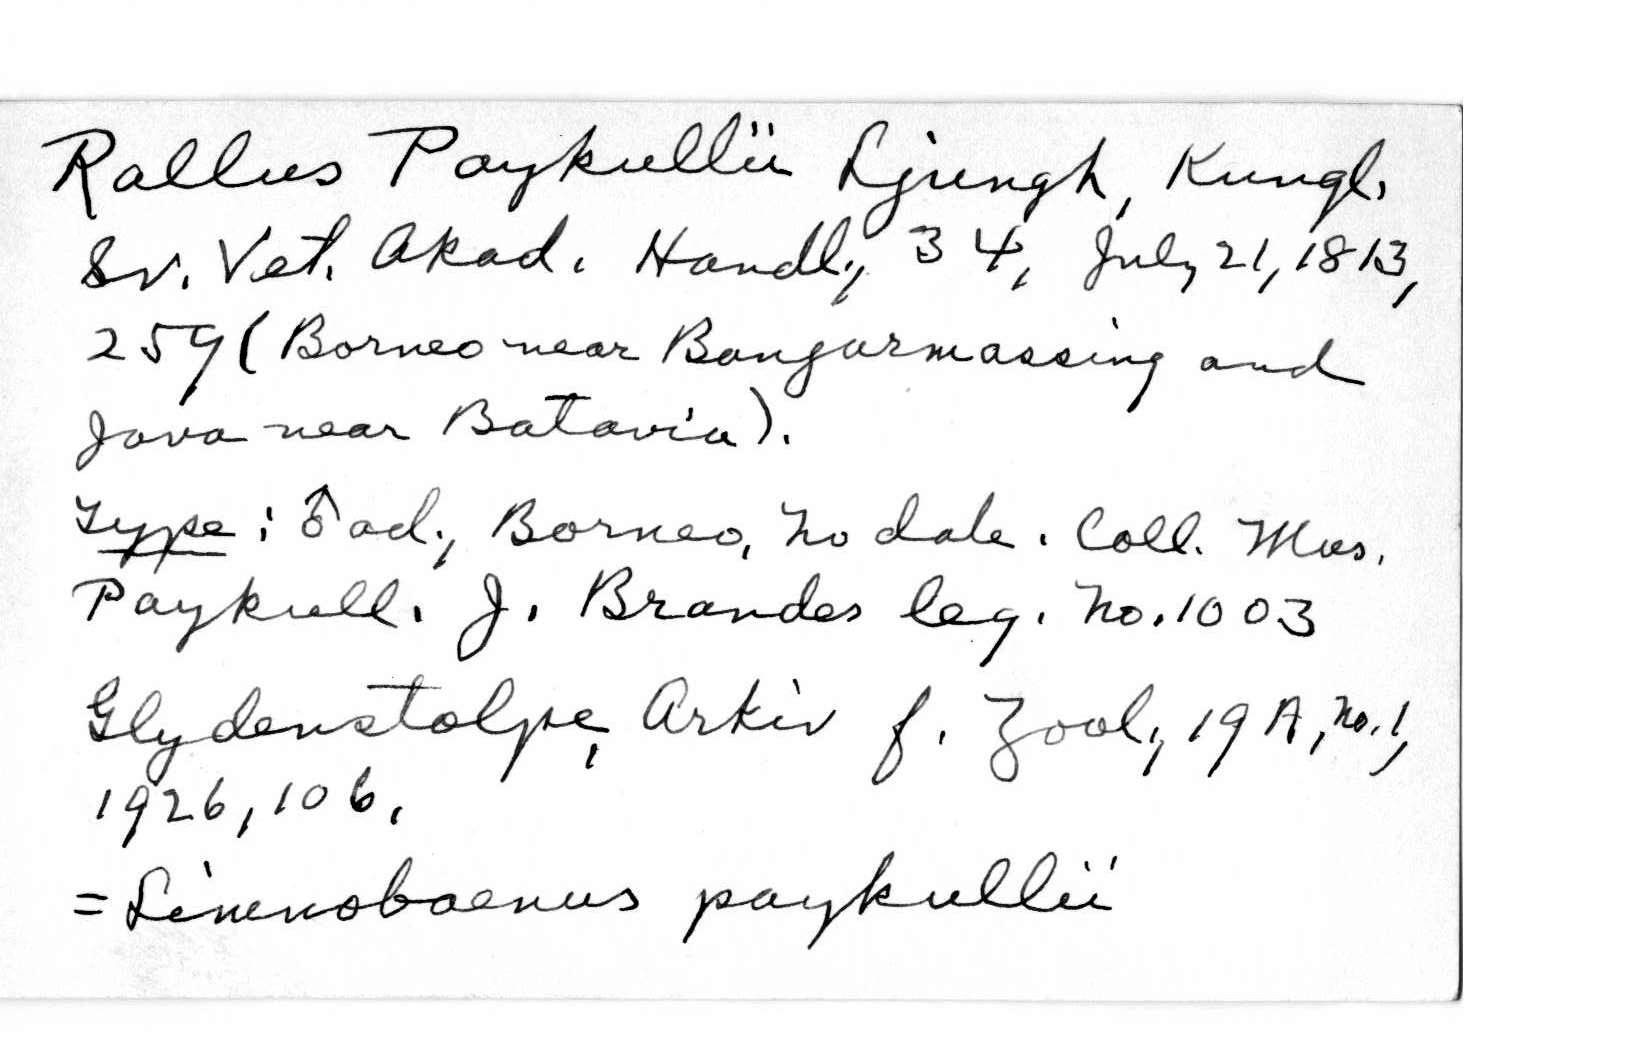 Rallus Paykullii Ljungh, Kungl.
Sv. Vet. Akad. Handl., 34, July 21, 1813,
259 (Borneo near Bangarmassing and
Java near Batavia).
Type: ♂ ad., Borneo, no date. Coll. Mus.
Paykull. J. Brandes leg. No. 1003
Glydenstolpe, Arkiv f. Zool., 19A, no. 1,
1926, 106.
= Limnobaenus paykullii